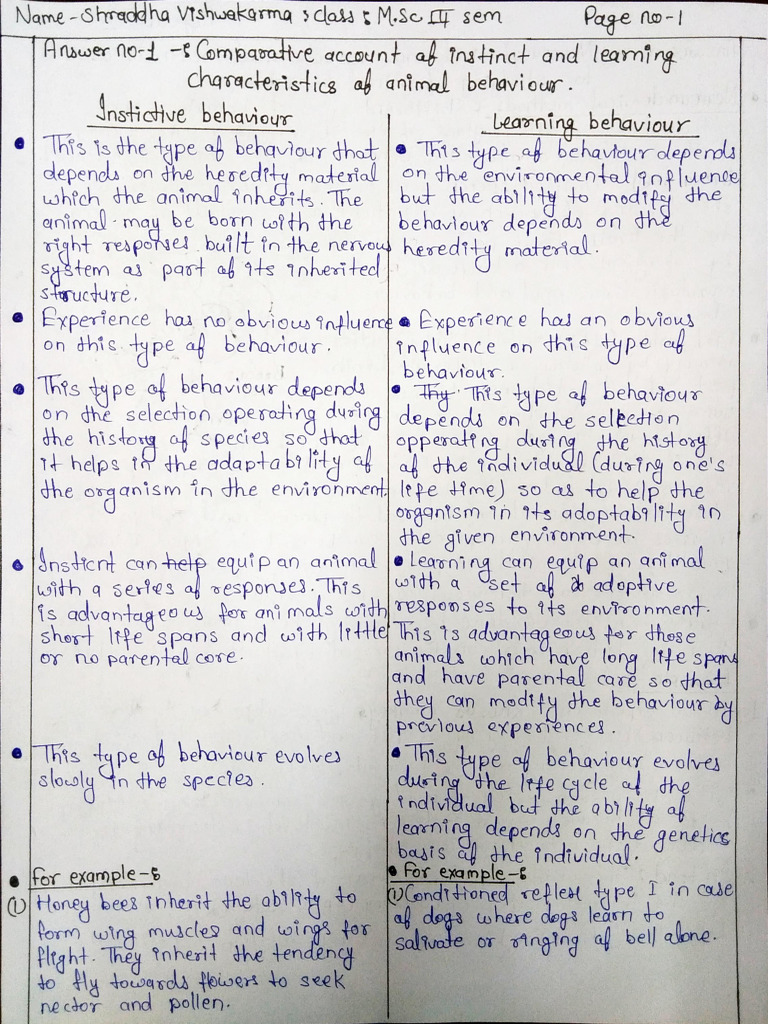 Name - Shraddha Vishwakarma ; class : M.Sc III sem Page no - 1
Answer no-1 -: Comparative account of instinct and learning
characteristics of animal behaviour.
Instictive behaviour
• This is the type of behaviour that
depends on the heredity material
which the animal inherits. The
animal may be born with the
right responses built in the nervous
system as part of its inherited
structure.
• Experience has no obvious influence
on this type of behaviour.
• This type of behaviour depends
on the selection operating during
the history of species so that
it helps in the adaptability of
the organism in the environment
• Insticnt can help equip an animal
with a series of responses. This
is advantageous for animals with
short life spans and with little
or no parental core.
• This type of behaviour evolves
slowly in the species.
• for example -:
(1) Honey bees inherit the ability to
form wing muscles and wings for
flight. They inherit the tendency
to fly towards flowers to seek
nector and pollen.
Learning behaviour
• This type of behaviour depends
on the environmental influence
but the ability to modify the
behaviour depends on the
heredity material.
• Experience has an obvious
influence on this type of
behaviour.
• Thy This type of behaviour
depends on the selection
opperating during the history
of the individual (during one's
life time) so as to help the
organism in its adoptability in
the given environment.
• Learning can equip an animal
with a set of adoptive
responses to its environment.
This is advantageous for those
animals which have long life spans
and have parental care so that
they can modify the behaviour by
previous experiences.
• This type of behaviour evolves
during the life cycle of the
individual but the ability of
learning depends on the genetics
basis of the individual.
• For example -:
(1) Conditioned reflest type I in case
of dogs where dogs learn to
salivate or ringing of bell alone.